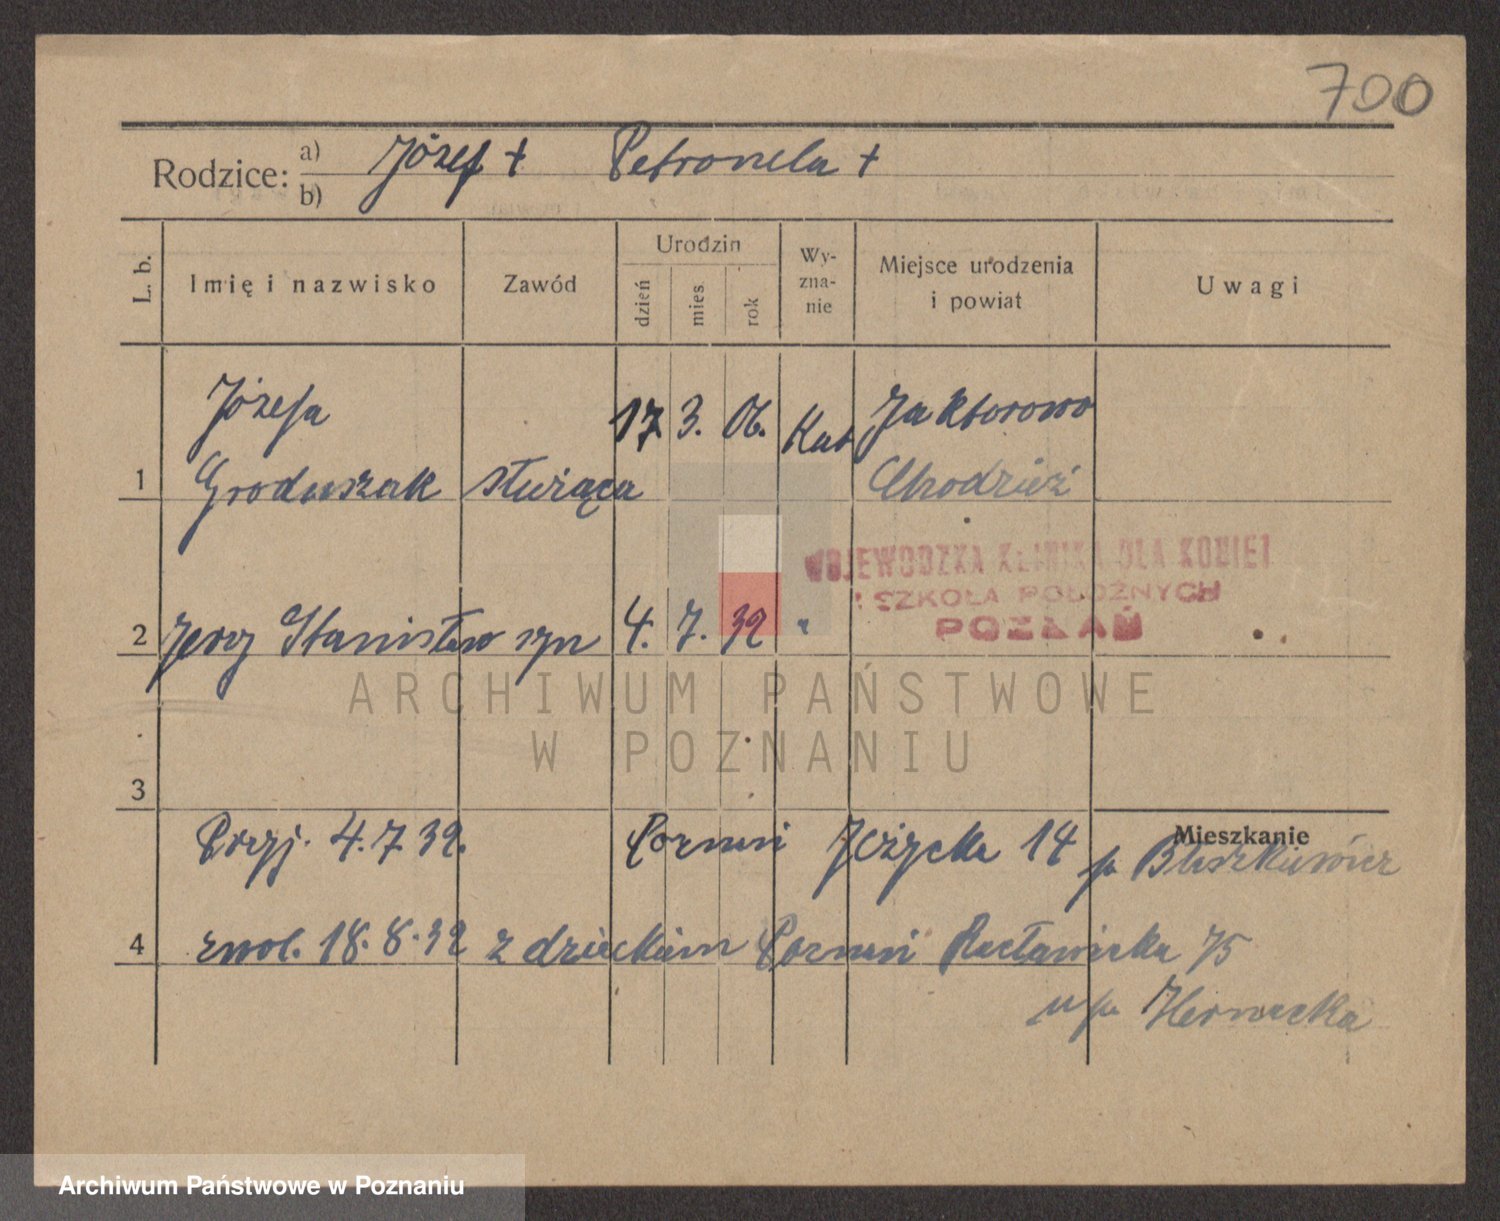 700
Rodzice: a) Józef + Petronela +
b)
L. b. Imię i nazwisko Zawód Urodzin dzień mies. rok Wy-zna-nie Miejsce urodzenia i powiat Uwagi
Józefa 17. 3. 06. Kat Jaktorowo
1 Groduszak służąca Chodzież
WOJEWÓDZKA KLINIKA DLA KOBIET
I SZKOŁA POŁOŻNYCH
POZNAŃ
2 Jerzy Stanisław syn 4. 7. 32 "
ARCHIWUM PAŃSTWOWE
W POZNANIU
3
Mieszkanie
Przyj. 4.7.32. Poznań Jeżycka 14 p. Błaszkiewicz
4 zwol. 18.8.32 z dzieckiem Poznań Racławicka 75
u p.
Archiwum Państwowe w Poznaniu